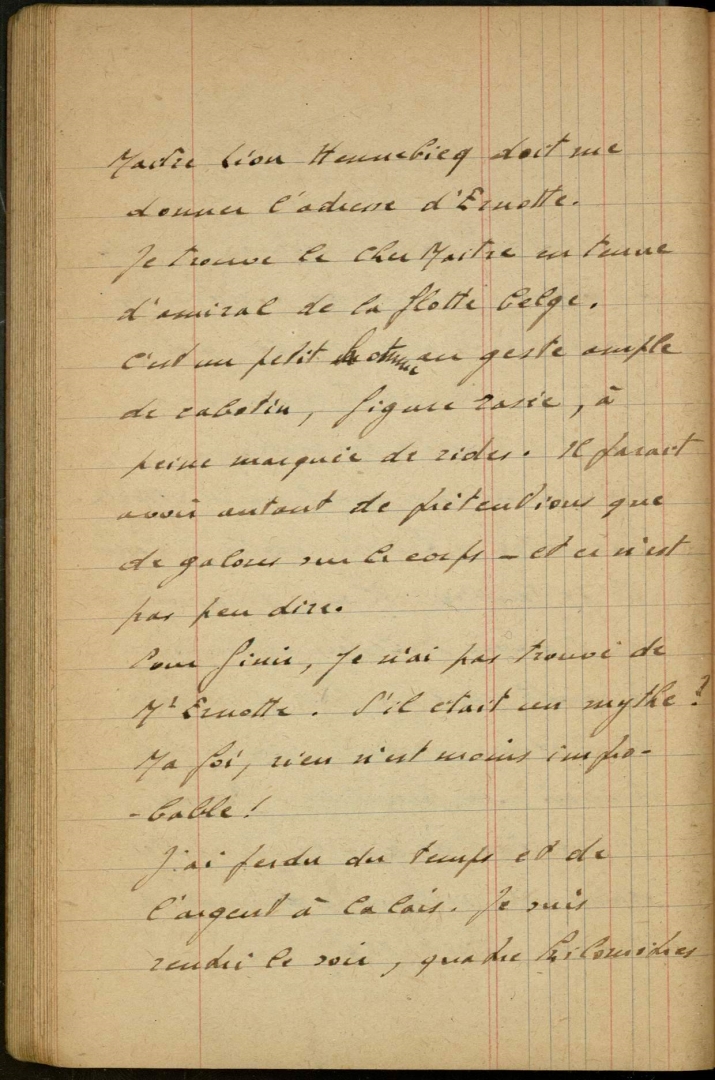 Maître Léon Hennebicq doit me
donner l'adresse d'Ernotte.
Je trouve le cher Maître en tenue
d'amiral de la flotte belge.
C'est un petit homme au geste ample
de cabotin, figure rasée, à
peine marquée de rides. Il parait
avoir autant de prétentions que
de galons sur le corps – et ce n'est
pas peu dire.
Pour finir, je n'ai pas trouvé de
Mr Ernotte. S'il était un mythe ?
Ma foi, rien n'est moins impro-
-bable !
J'ai perdu du temps et de
l'argent à Calais. Je suis
rendu le soir, quatre kilomètres